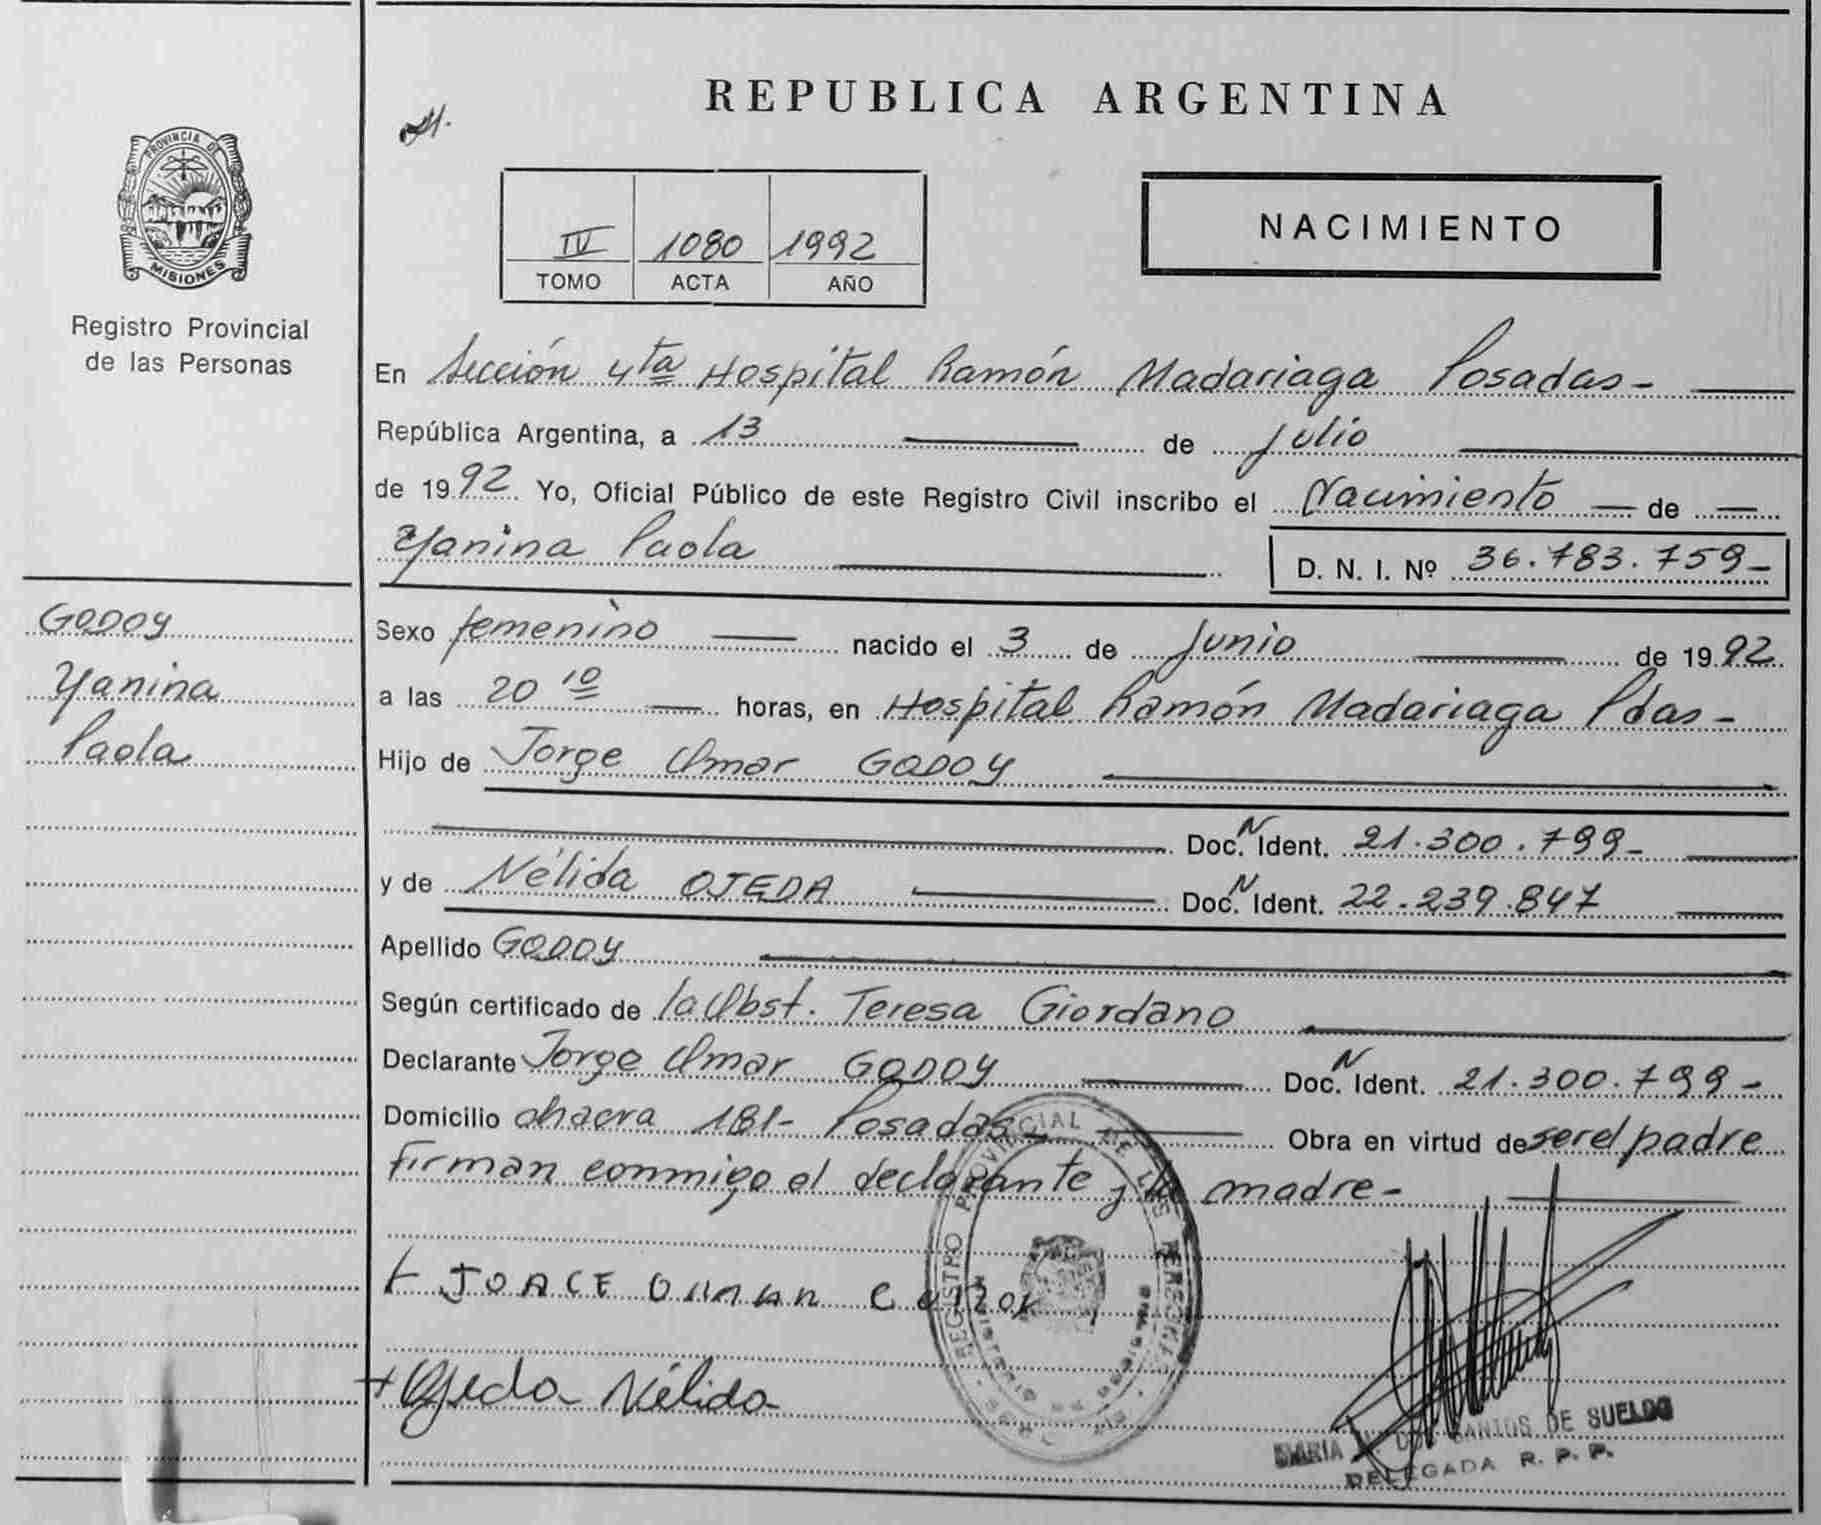 REPUBLICA ARGENTINA
PROVINCIA DE
MISIONES
Registro Provincial
de las Personas
IV 1080 1992
TOMO ACTA AÑO
NACIMIENTO
En Sección 4ta Hospital Ramón Madariaga Posadas-
República Argentina, a 13 de Julio
de 1992 Yo, Oficial Público de este Registro Civil inscribo el Nacimiento de
Yanina Paola
D. N. I. Nº 36.783.759-
GODOY
Yanina
Paola
Sexo femenino nacido el 3 de Junio de 1992
a las 20 10 horas, en Hospital Ramón Madariaga Pdas-
Hijo de Jorge Omar GODOY
Doc. N Ident. 21.300.799-
y de Nélida OJEDA Doc. N Ident. 22.239.847
Apellido GODOY
Según certificado de la Obst. Teresa Giordano
Declarante Jorge Omar GODOY Doc. N Ident. 21.300.799-
Domicilio chacra 181- Posadas- Obra en virtud de ser el padre
Firman conmigo el declarante y la madre-
REGISTRO PROVINCIAL DE LAS PERSONAS
JORGE OMAR
Ojeda Nélida
MARIA SANTOS DE SUELDO
DELEGADA R. P. P.